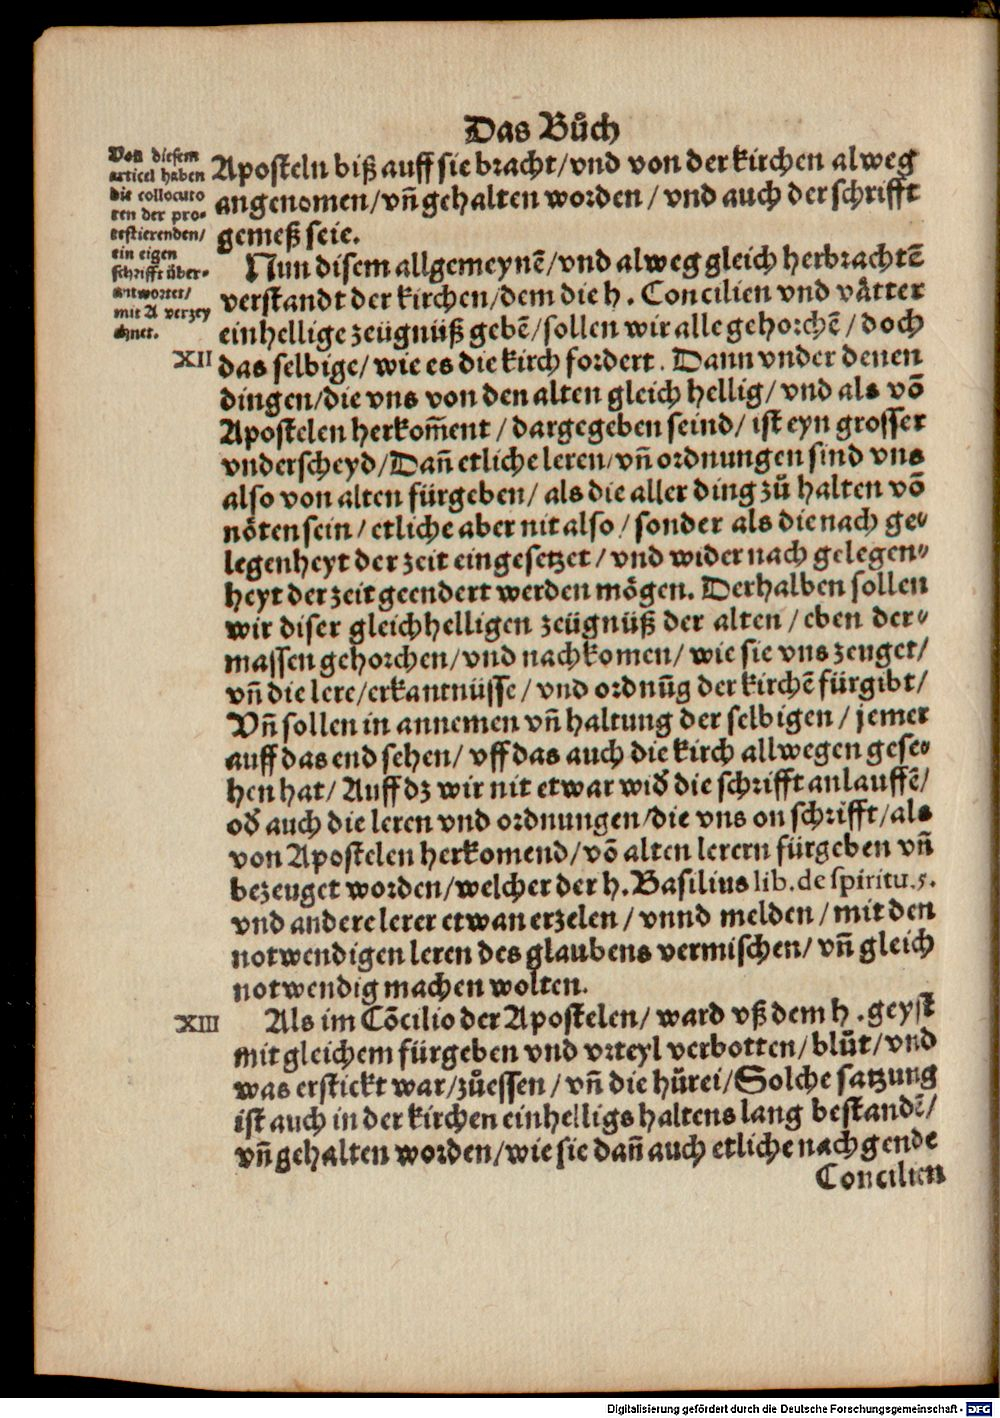 Das Bůch
Von diesem
articel haben
die collocuto
ren der pro⸗
testierenden/
ein eigen
schrifft über⸗
antwortet/
mit A verzey
chnet.
Aposteln biß auff sie bracht/vnd von der kirchen alweg
angenomen/vñ gehalten worden/vnd auch der schrifft
gemeß seie.
Nun disem allgemeynẽ/vnd alweg gleich herbrachtẽ
verstandt der kirchen/dem die h. Concilien vnd våtter
einhellige zeügnüß gebẽ/sollen wir alle gehorchẽ/doch
XII das selbige/wie es die kirch fordert. Dann vnder denen
dingen/die vns von den alten gleich hellig/vnd als võ
Apostelen herkom̃ent/dargegeben seind/ist eyn grosser
vnderscheyd/Dañ etliche leren/vñ ordnungen sind vns
also von alten fürgeben/als die aller ding zů halten võ
nöten sein/etliche aber nit also/sonder als die nach ge⸗
legenheyt der zeit eingesetzet/vnd wider nach gelegen⸗
heyt der zeit geendert werden mögen. Derhalben sollen
wir diser gleichhelligen zeügnüß der alten/eben der⸗
massen gehorchen/vnd nachkomen/wie sie vns zeuget/
vñ die lere/erkantnüsse/vnd ordnũg der kirchẽ fürgibt/
Vñ sollen in annemen vñ haltung der selbigen/jemer
auff das end sehen/vff das auch die kirch allwegen gese⸗
hen hat/Auff dz wir nit etwar wid̕ die schrifft anlauffẽ/
od̕ auch die leren vnd ordnungen/die vns on schrifft/als
von Apostelen herkomend/võ alten lerern fürgeben vñ
bezeuget worden/welcher der h. Basilius lib. de spiritu. s.
vnd andere lerer etwan erzelen/vnnd melden/mit den
notwendigen leren des glaubens vermischen/vñ gleich
notwendig machen wolten.
XIII Als im Cõcilio der Apostelen/ward vß dem h. geyst
mit gleichem fürgeben vnd vrteyl verbotten/blůt/vnd
was erstickt war/zůessen/vñ die hůrei/Solche satzung
ist auch in der kirchen einhelligs haltens lang bestandẽ/
vñ gehalten worden/wie sie dañ auch etliche nachgende
Concilien
Digitalisierung gefördert durch die Deutsche Forschungsgemeinschaft - DFG